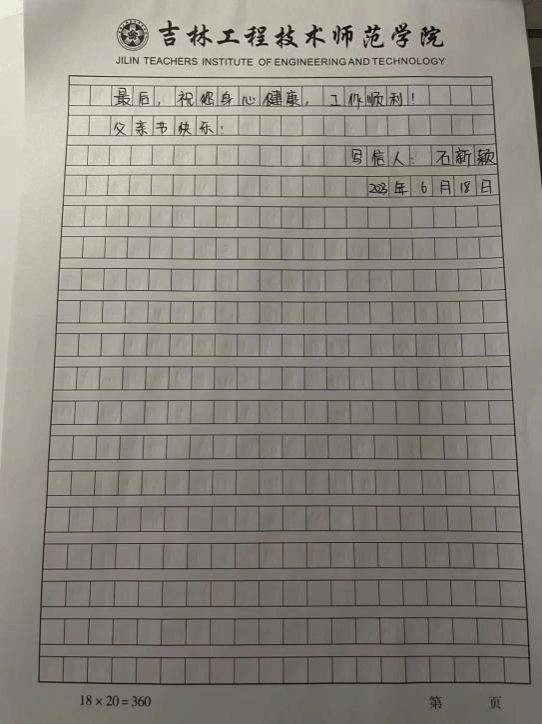 吉林工程技术师范学院
JILIN TEACHERS INSTITUTE OF ENGINEERING AND TECHNOLOGY
最后，祝您身心健康，工作顺利！
父亲节快乐！
写信人：石新颖
2023年6月18日
18×20=360
第 页